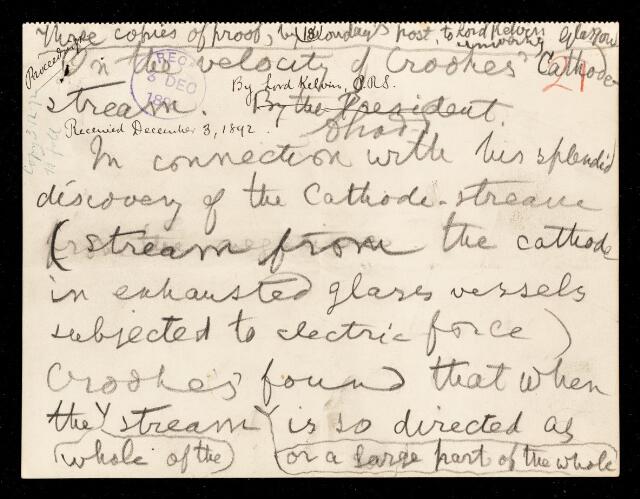 Three copies of proof, by Monday's post, to Lord Kelvin
University Glasgow
Proceedings
On the velocity of Crookes' Cathode
stream. By Lord Kelvin, P.R.S.
By the President.
REC
3 DEC
189
21
Received December 3, 1892.
In connection with his splendid
discovery of the Cathode-stream
(stream from the cathode
in exhausted glass vessels
subjected to electric force)
Crookes found that when
the stream is so directed as
whole of the or a large part of the whole